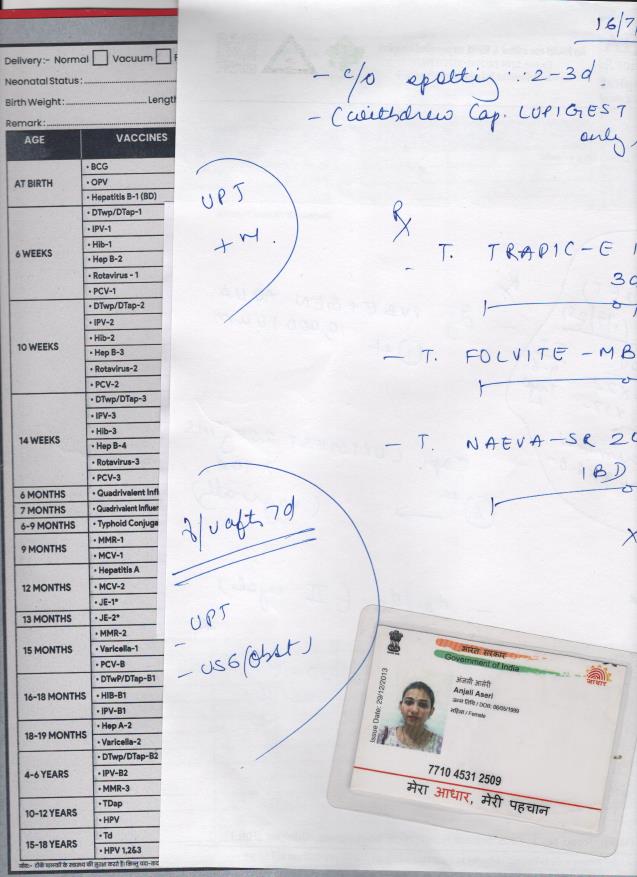 Delivery:- Normal Vacuum F
Neonatal Status:
Birth Weight: Length
Remark:
AGE VACCINES
AT BIRTH
• BCG
• OPV
• Hepatitis B-1 (BD)
6 WEEKS
• DTwp/DTap-1
• IPV-1
• Hib-1
• Hep B-2
• Rotavirus - 1
• PCV-1
10 WEEKS
• DTwp/DTap-2
• IPV-2
• Hib-2
• Hep B-3
• Rotavirus-2
• PCV-2
14 WEEKS
• DTwp/DTap-3
• IPV-3
• Hib-3
• Hep B-4
• Rotavirus-3
• PCV-3
6 MONTHS • Quadrivalent Infl
7 MONTHS • Quadrivalent Influer
6-9 MONTHS • Typhoid Conjuga
9 MONTHS
• MMR-1
• MCV-1
12 MONTHS
• Hepatitis A
• MCV-2
• JE-1*
13 MONTHS • JE-2*
15 MONTHS
• MMR-2
• Varicella-1
• PCV-B
16-18 MONTHS
• DTwP/DTap-B1
• HIB-B1
• IPV-B1
18-19 MONTHS
• Hep A-2
• Varicella-2
4-6 YEARS
• DTwp/DTap-B2
• IPV-B2
• MMR-3
10-12 YEARS
• TDap
• HPV
15-18 YEARS
• Td
• HPV 1,2&3
16/7/
- c/o spotting ∵ 2-3d.
- (withdrew Cap. LUPIGEST
only
UPT
+ve.
Rx
- T. TRAPIC-E
- T. FOLVITE-MB
- T. NAEVA-SR 20
1BD
X
f/u after 7d
- UPT
- USG (Obst)
भारत सरकार
Government of India
आधार
Issue Date: 29/12/2013
अंजली आसेरी
Anjali Aseri
जन्म तिथि / DOB: 06/05/1989
महिला / Female
7710 4531 2509
मेरा आधार, मेरी पहचान